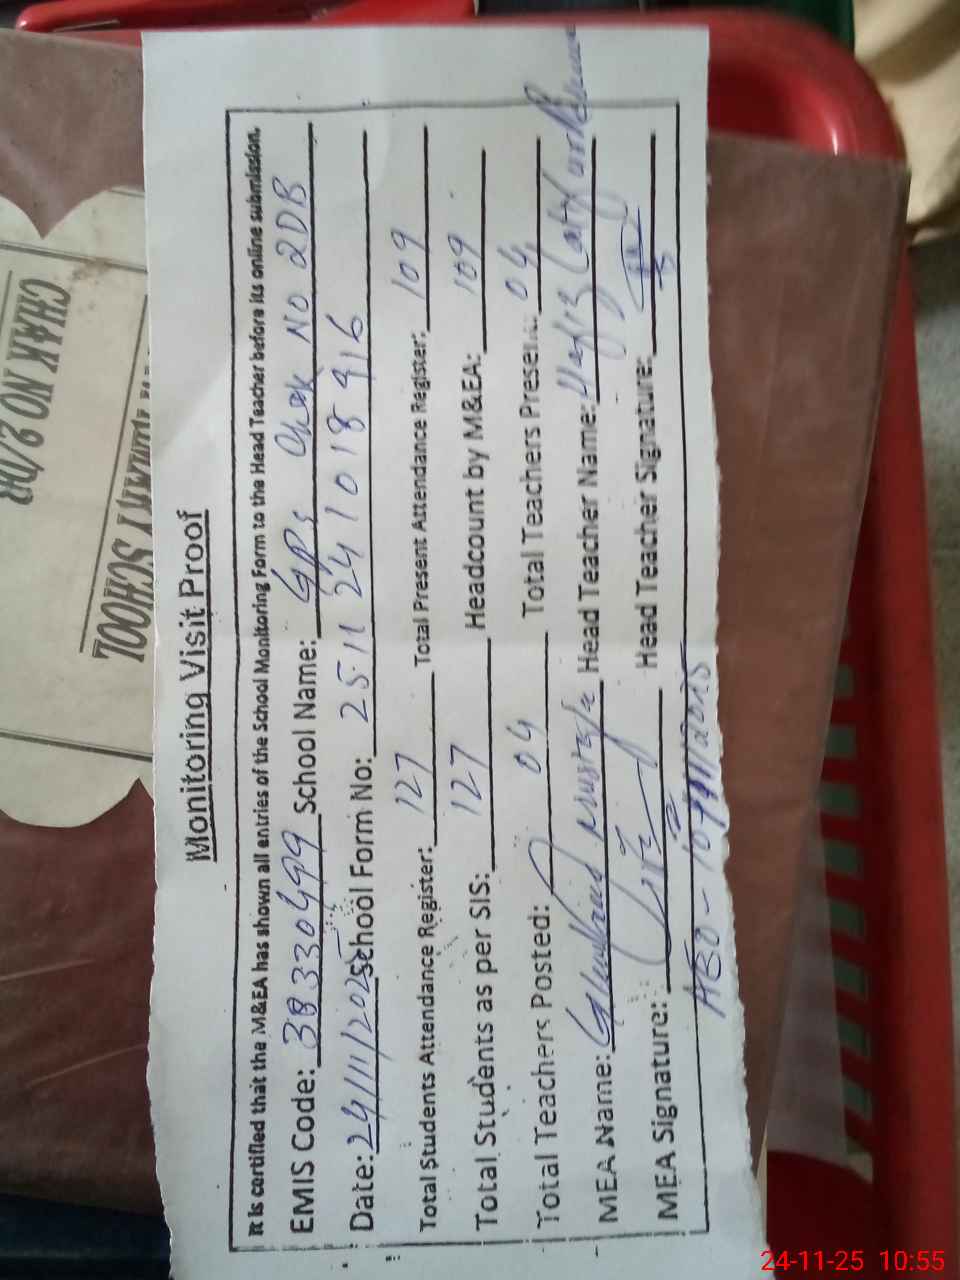 Monitoring Visit Proof
It is certified that the M&EA has shown all entries of the School Monitoring Form to the Head Teacher before its online submission.
EMIS Code: 38330499 School Name: GPS Chak No 2DB
Date: 24/11/2025 School Form No: 25 11 24 10 18 916
Total Students Attendance Register: 127 Total Present Attendance Register: 109
Total Students as per SIS: 127 Headcount by M&EA: 109
Total Teachers Posted: 04 Total Teachers Present: 04
MEA Name: Ghulam Mustafa Head Teacher Name: Hafiz
MEA Signature: Head Teacher Signature:
CHAK NO 2/DB
PRIMARY SCHOOL
24-11-25 10:55